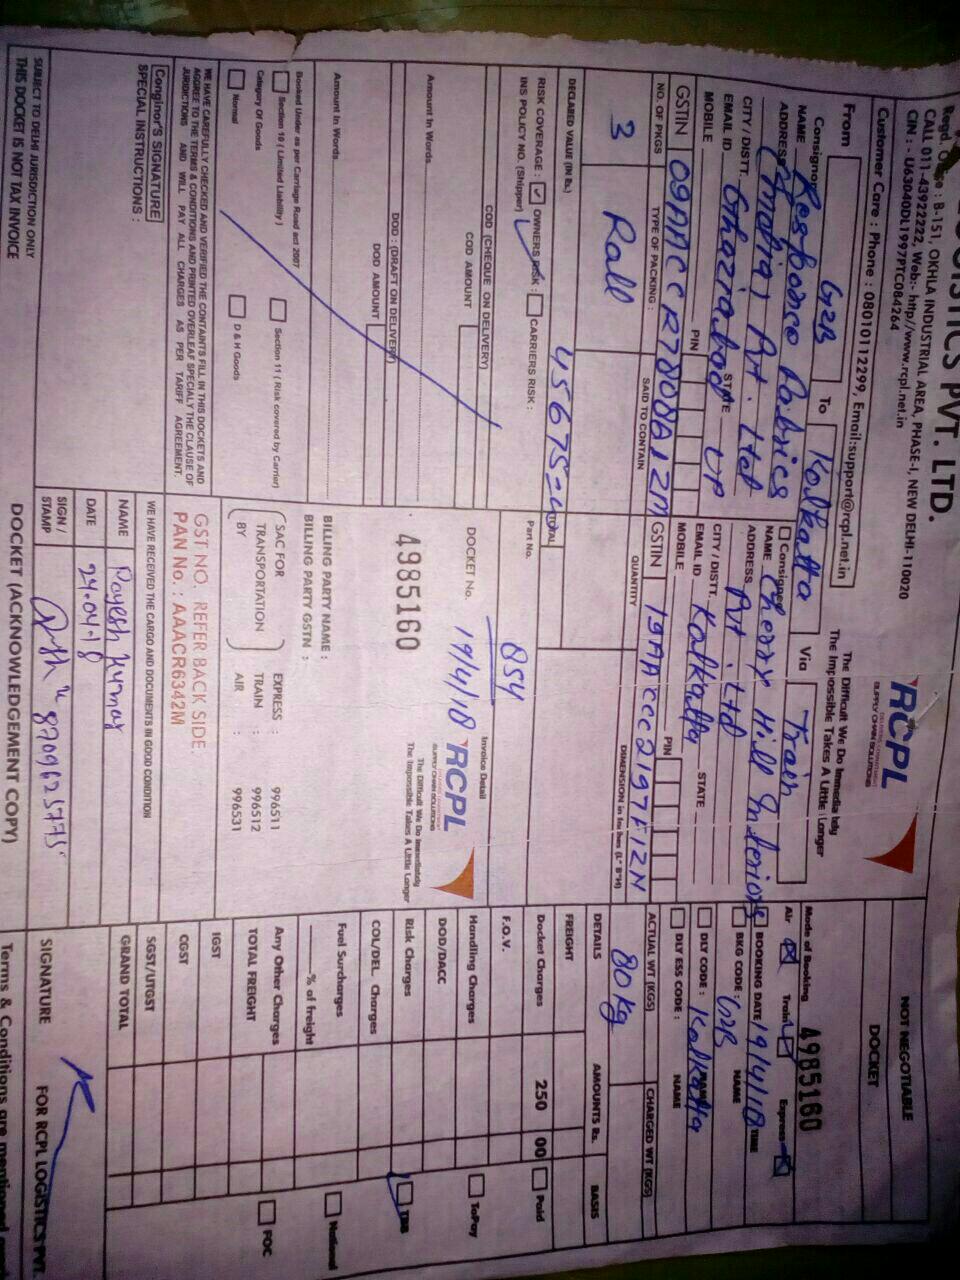 PVT. LTD.
: B-151, OKHLA INDUSTRIAL AREA, PHASE-I, NEW DELHI-110020
CALL 011-43922222, Web:- http//www.rcpl.net.in
CIN : - U63040DL1997PTC084264
Customer Care : Phone : 08010112299, Email:support@rcpl.net.in
RCPL
SUPPLY CHAIN SOLUTIONS
The Difficult We Do Immediately
The Impossible Takes A Little Longer
NOT NEGOTIABLE
DOCKET
4985160
From GZB To Kolkatta Via Train
Mode of Booking
Air Train Express
Consignor
NAME
ADDRESS (India) Pvt. Ltd
CITY / DISTT. Ghaziabad STATE UP
EMAIL ID
MOBILE PIN
GSTIN 09AACCR7808A1ZM
Consignee
NAME Cherry Hill Interiors
ADDRESS Pvt. Ltd
CITY / DISTT. Kolkatta STATE
EMAIL ID
MOBILE PIN
GSTIN 19AACCC2197F1ZN
BOOKING DATE 19/4/18 TIME
BKG CODE : GZB NAME
DLY CODE : Kolkatta NAME
DLY ESS CODE : NAME
NO. OF PKGS TYPE OF PACKING SAID TO CONTAIN QUANTITY DIMENSION in Inches (L* B*H)
3 Roll
ACTUAL WT (KGS) CHARGED WT (KGS)
80 Kg
DECLARED VALUE (IN Rs.) 45675=00 TOTAL
RISK COVERAGE : OWNERS RISK : CARRIERS RISK :
INS POLICY NO. (Shipper)
Part No. Invoice Detail
854
COD (CHEQUE ON DELIVERY)
COD AMOUNT
Amount In Words
DOD : (DRAFT ON DELIVERY)
DOD AMOUNT
Amount In Words
DOCKET No. 19/4/18
4985160
RCPL
SUPPLY CHAIN SOLUTIONS
The Difficult We Do Immediately
The Impossible Takes A Little Longer
BILLING PARTY NAME :
BILLING PARTY GSTN :
Booked Under as per Carriage Road act 2007
Section 10 ( Limited Liability ) Section 11 ( Risk covered by Carrier)
Category Of Goods
Normal D & H Goods
SAC FOR TRANSPORTATION BY
EXPRESS : 996511
TRAIN : 996512
AIR : 996531
GST NO. REFER BACK SIDE.
PAN No. : AAACR6342M
WE HAVE CAREFULLY CHECKED AND VERIFIED THE CONTAINTS FILL IN THIS DOCKETS AND
AGGREE TO THE TERMS & CONDITIONS AND PRINTED OVERLEAF SPECIALY THE CLAUSE OF
JURISDICTIONS AND WILL PAY ALL CHARGES AS PER TARIFF AGREEMENT.
Conginor'S SIGNATURE
SPECIAL INSTRUCTIONS :
WE HAVE RECEIVED THE CARGO AND DOCUMENTS IN GOOD CONDITION
NAME Rajesh Kumar
DATE 24.04.18
SIGN / STAMP
DETAILS AMOUNTS Rs. BASIS
FREIGHT
Docket Charges 250 00 Paid
F.O.V.
Handling Charges ToPay
DOD/DACC
Risk Charges TBB
COL/DEL. Charges
Fuel Surcharges
% of freight National
Any Other Charges
TOTAL FREIGHT FOC
IGST
CGST
SGST/UTGST
GRAND TOTAL
SIGNATURE FOR RCPL LOGISTICS PVT.
SUBJECT TO DELHI JURISDICTION ONLY
THIS DOCKET IS NOT TAX INVOICE
DOCKET (ACKNOWLEDGEMENT COPY)
Terms & Conditions are mentioned